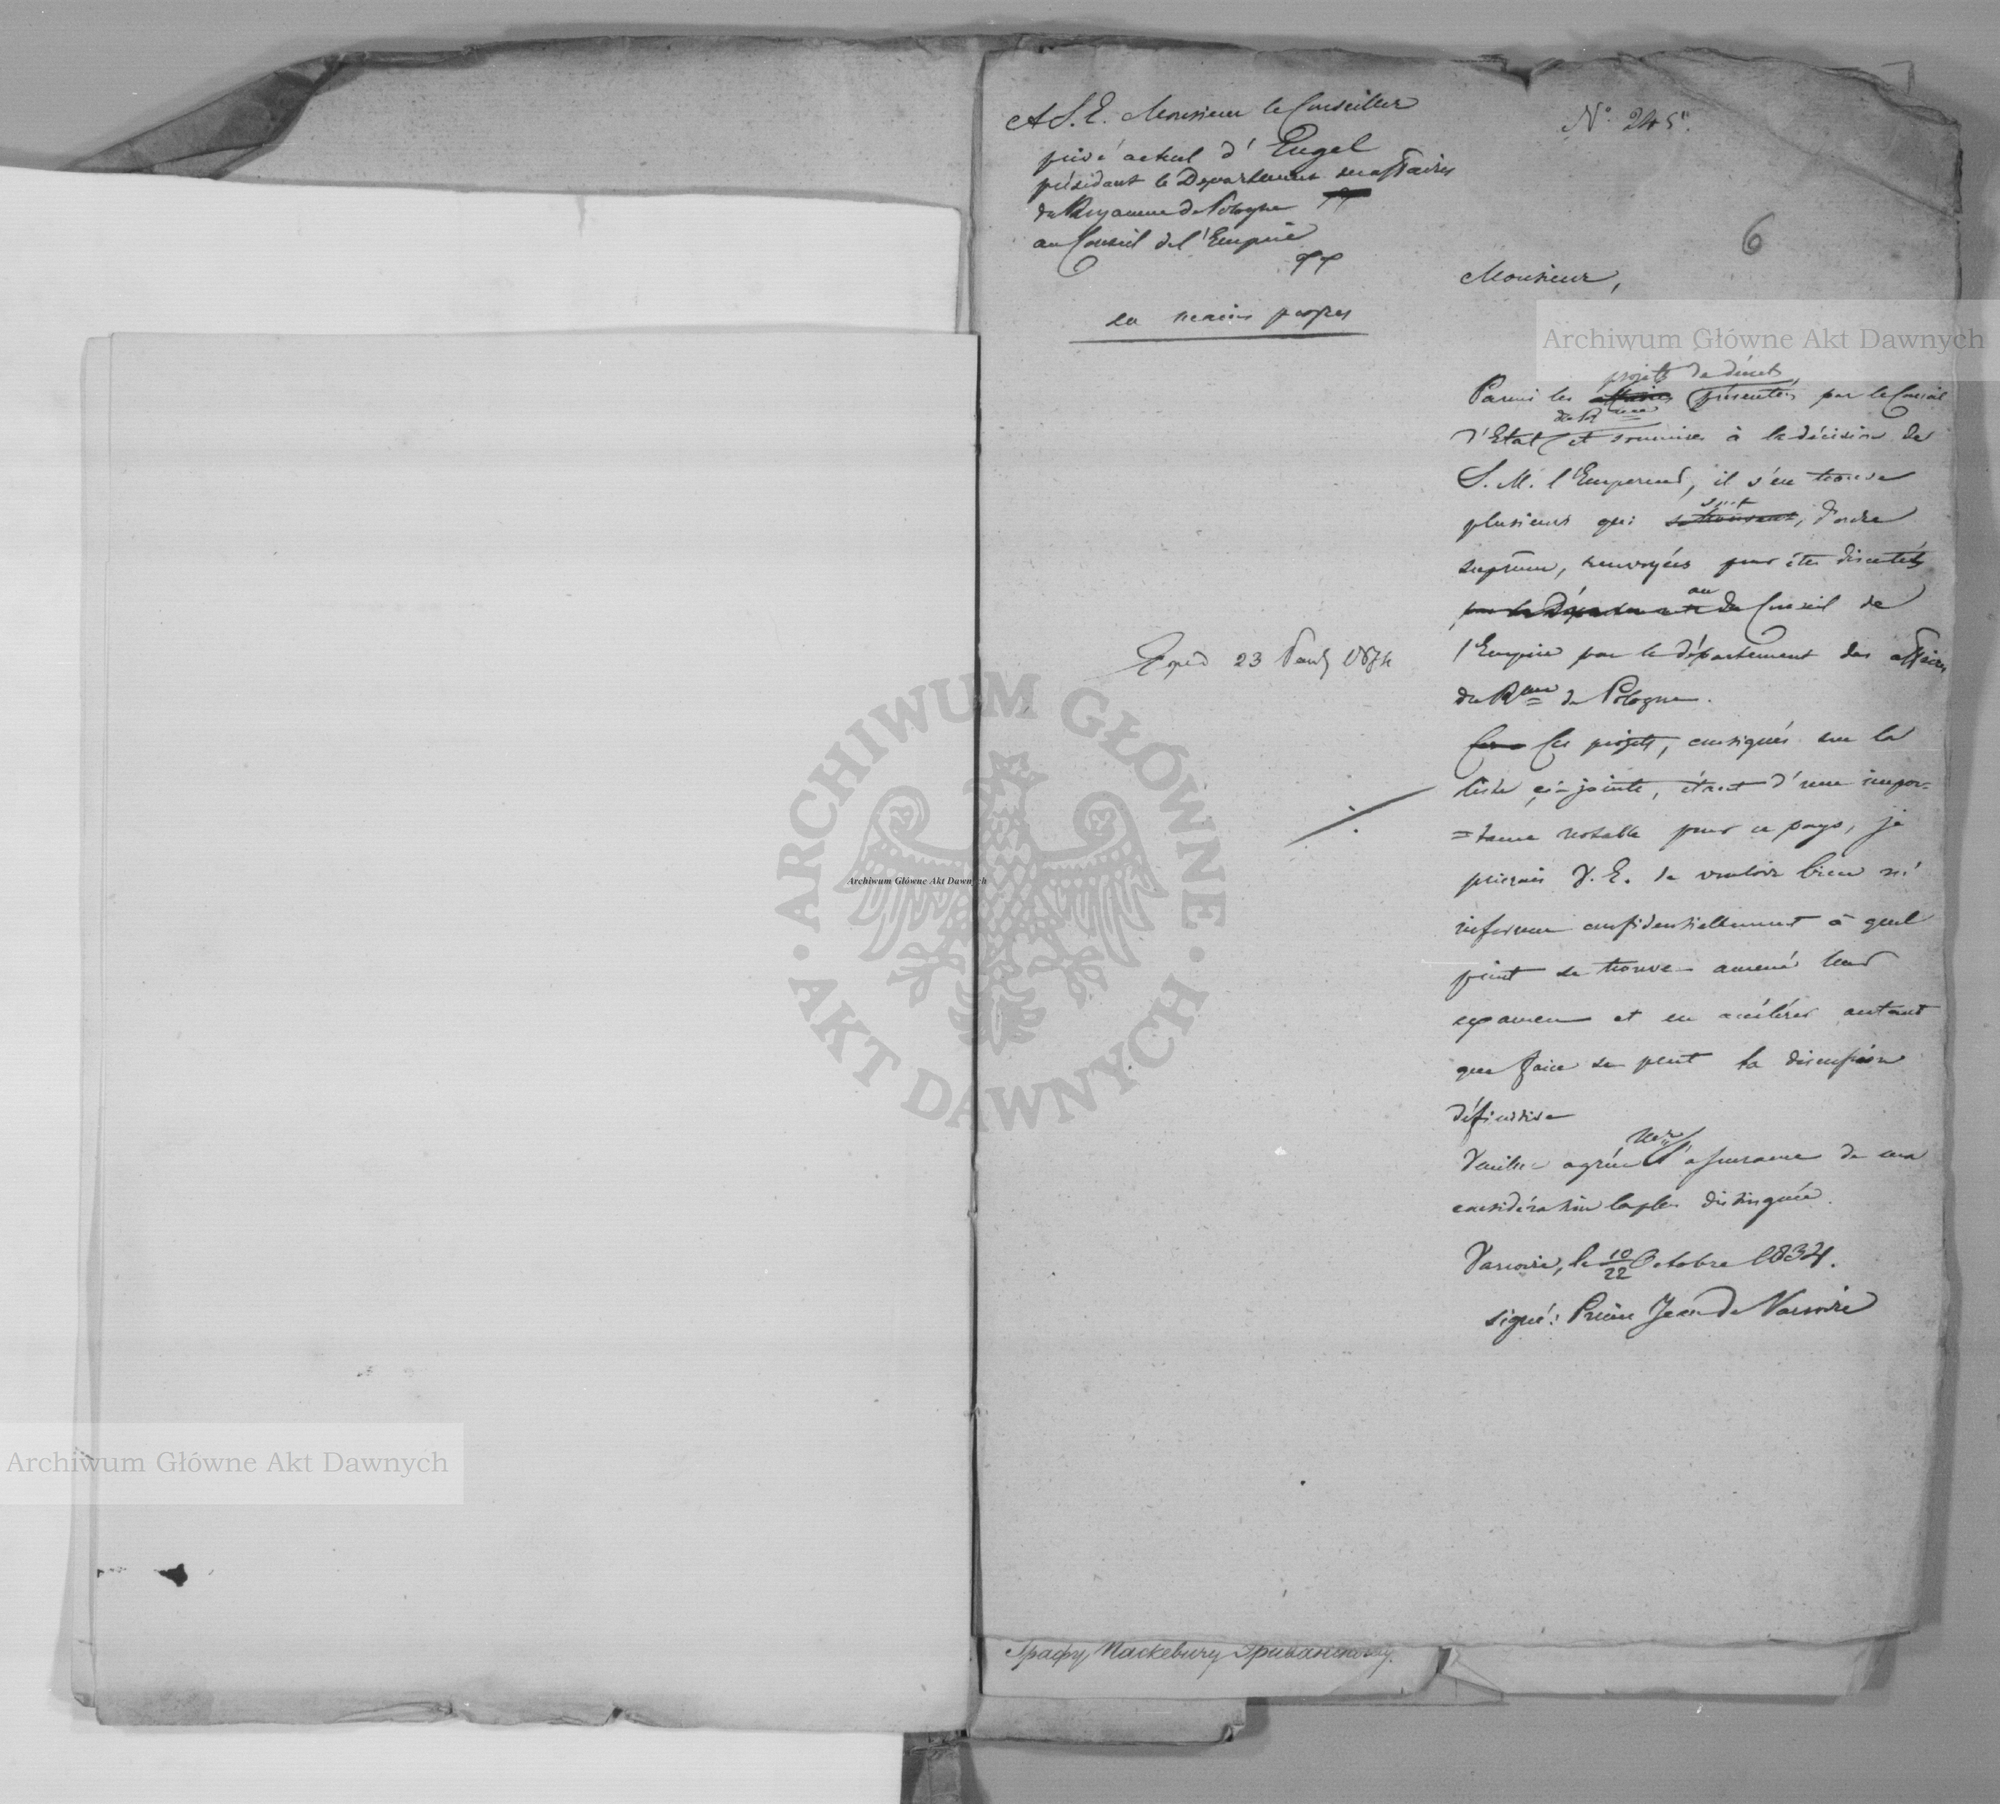 A S. E. Monsieur le Conseiller
privé actuel d'Engel
présidant le Département des affaires
du Royaume de Pologne
au Conseil de l'Empire
en mains propres
No. 245.
6
Monsieur,
projets de décrets
Parmi les affaires présentés par le Conseil
du Rme
d'Etat et soumises à la décision de
S. M. l'Empereur, il s'en trouve
sont
plusieurs qui se trouvent, d'ordre
suprême, renvoyées pour être discutés
au
par le Département du Conseil de
l'Empire par le département des affaires
du Rme de Pologne.
Ces projets, consignés sur la
liste ci-jointe, étant d'une impor-
=tance notable pour ce pays, je
prierais V. E. de vouloir bien m'
informer confidentiellement à quel
point se trouve amené leur
examen et en accélérer autant
que faire se peut la discussion
définitive
Veuillez agréer l'assurance de ma
considération la plus distinguée.
Varsovie, le 10/22 Octobre 1834.
signé: Prince Jean de Varsovie
Exped 23 1834
Графу Паскевичу Эриванскому.
Archiwum Główne Akt Dawnych
Archiwum Główne Akt Dawnych
Archiwum Główne Akt Dawnych
ARCHIWUM GŁÓWNE
AKT DAWNYCH